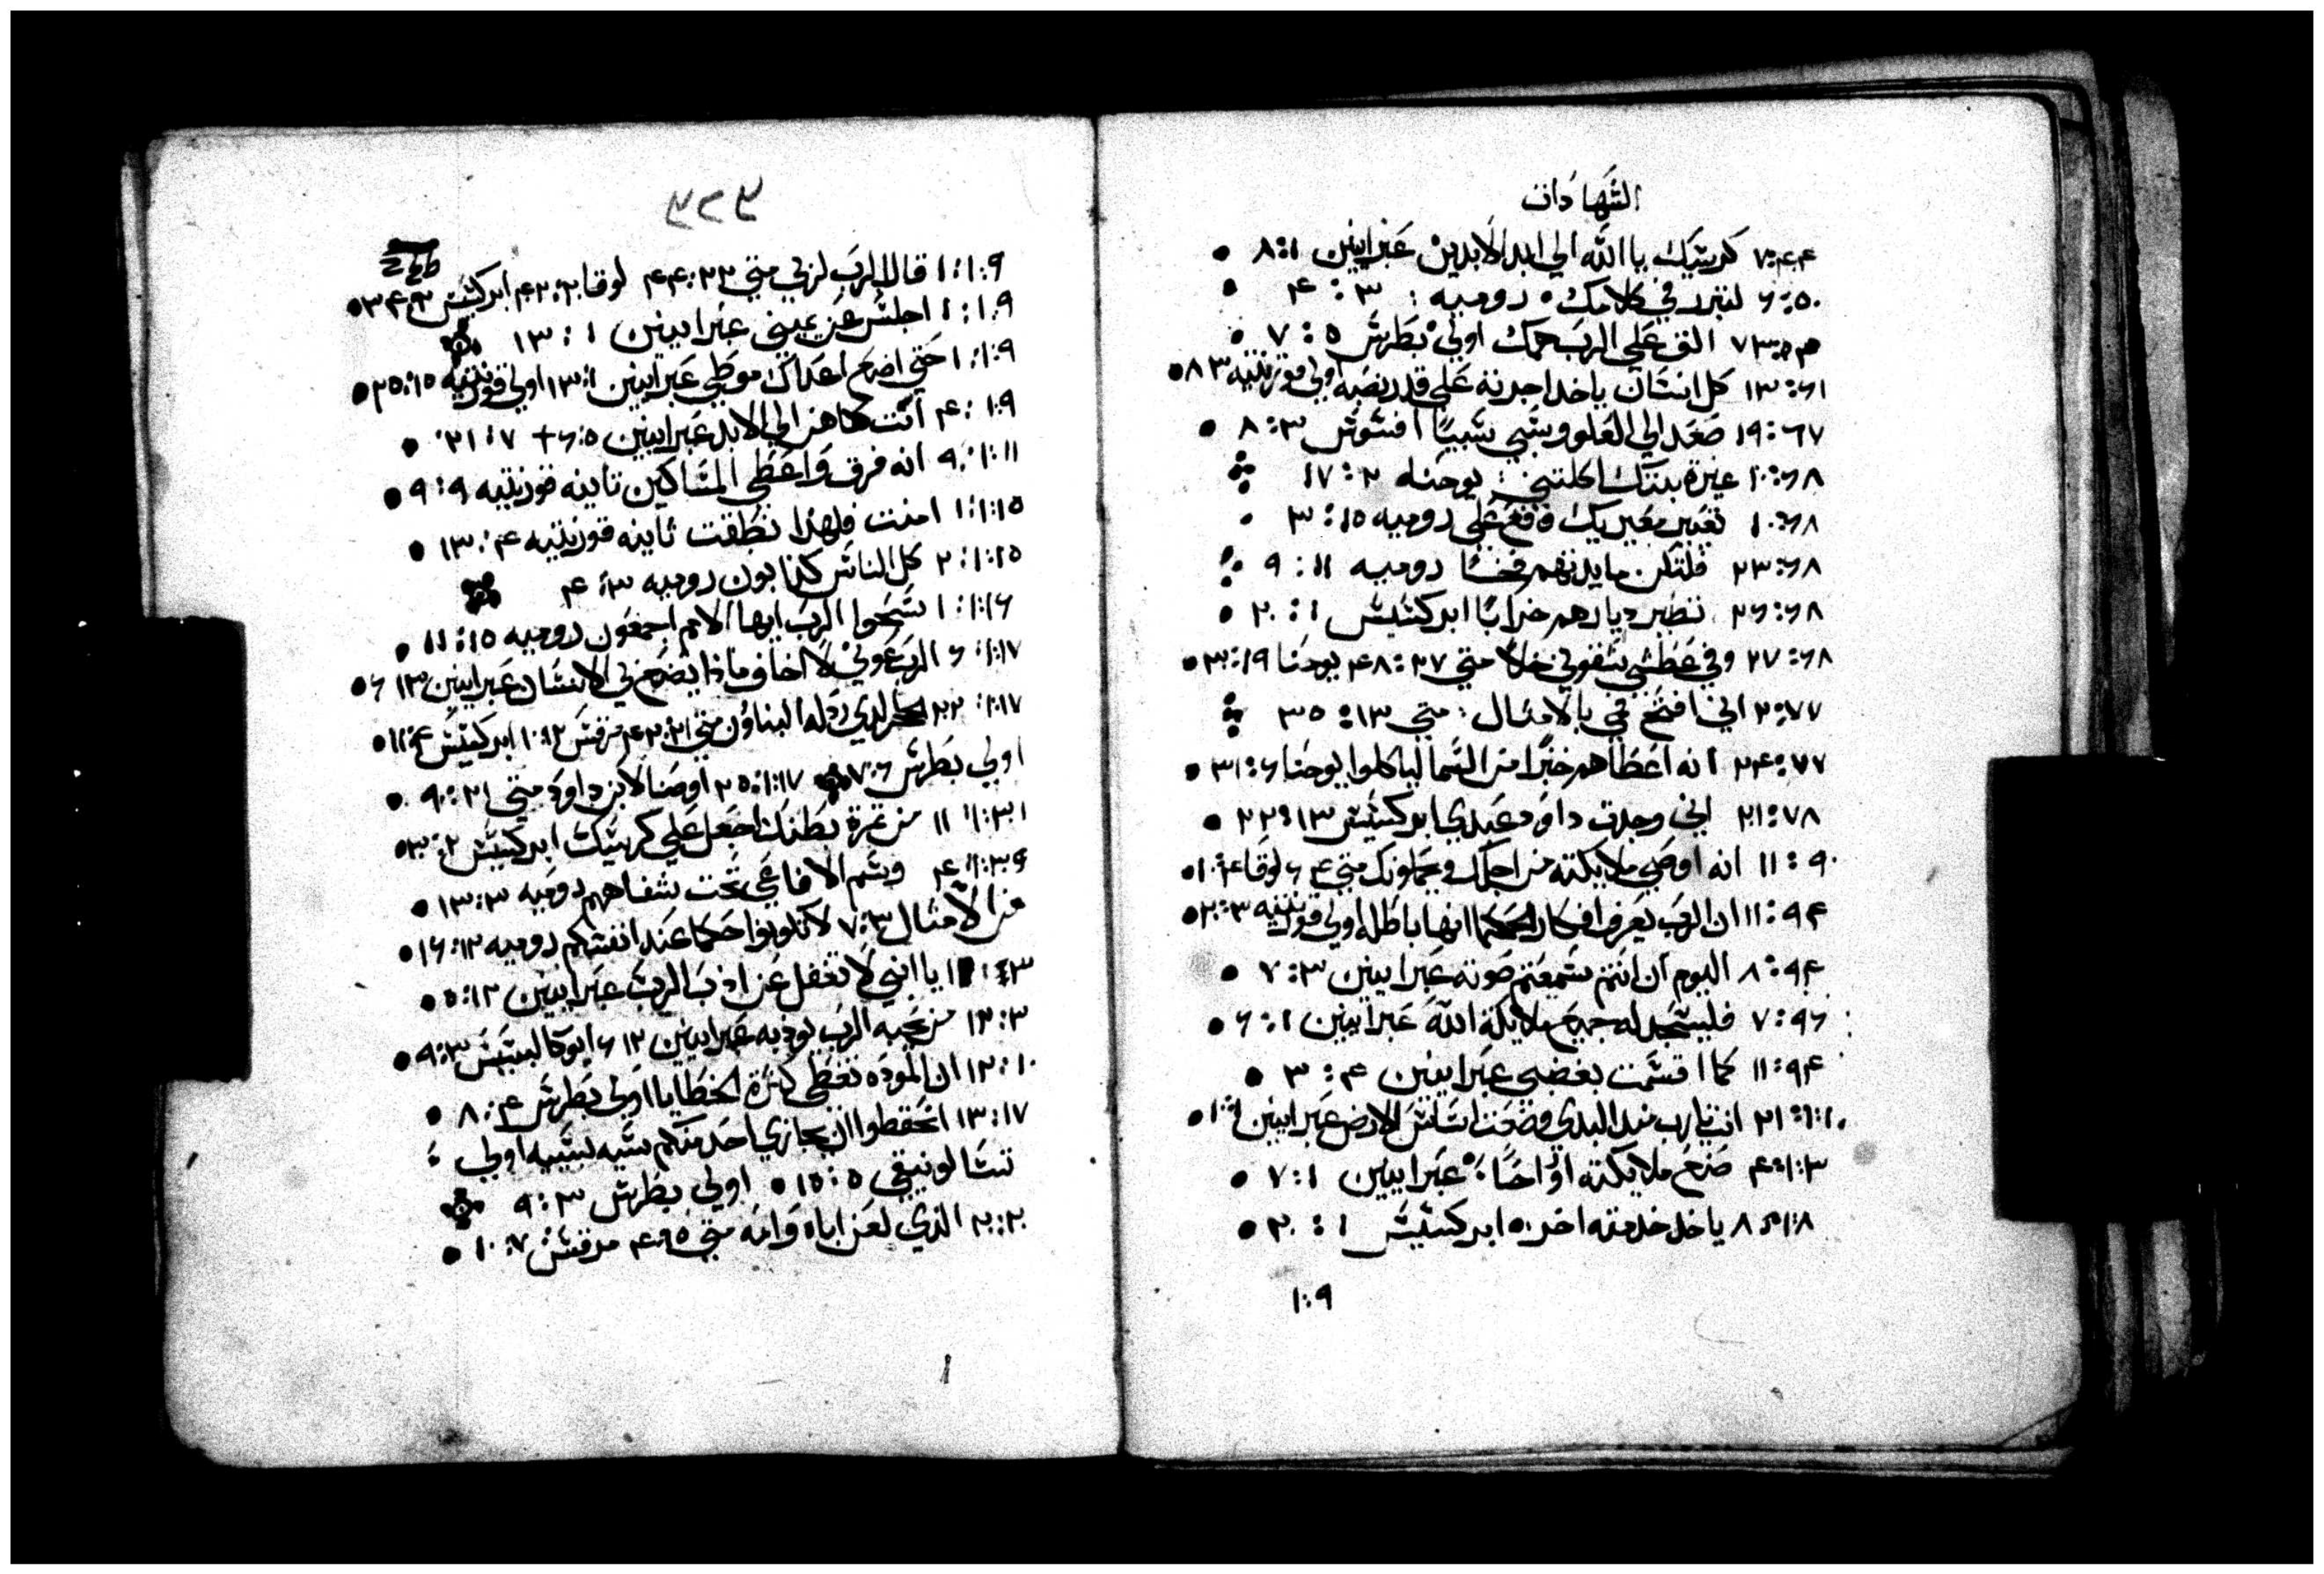 الشهادات
٧:٤٤ كرسيك يا الله الي ابد الابدين عبرانيين ٨:١
٦:٥٠ لتبرر في كلامك رومييه : ٣ : ٤
القي علي الرب همك اولي بطرس ٥ : ٧
١٣:٦١ كل انسان ياخد اجرته علي قدر نصبه اولي قورنتيه ٨:٣
١٩:٦٧ صعد الي العلو وسبي سبيًا افسوس ٨:٣
١٠:٦٨ غيرة بيتك اكلتني : يوحنا ٢ : ١٧
١٠:٦٨ تعيير معيريك وقع علي رومييه ١٥ : ٣
٢٣:٦٨ فلتكن مايدتهم فخًا رومييه ١١ : ٩
٢٦:٦٨ تصير ديارهم خرابًا ابركسيس ١ : ٢٠
٢٧:٦٨ وفي عطشي سقوني خلا متي ٢٧ : ٤٨ يوحنا ١٩ : ٣٠
٢:٧٧ اني افتح فمي بالامثال : متي ١٣ : ٣٥
٢٤:٧٧ انه اعطاهم خبزًا من السما لياكلوا يوحنا ٦ : ٣١
٢١:٧٨ اني وجدت داود عبدي ابركسيس ١٣ : ٢٢
٩٠ : ١١ انه اوصي ملايكته من اجلك ويحملونك متي ٤ ٦ لوقا ٤ : ١٠
١١:٩٤ ان الرب يعرف افكار الحكما انها باطله اولي قورنتيه ٣ : ٢٠
٨:٩٤ اليوم ان انتم سمعتم صوته عبرانيين ٣ : ٧
٧:٩٦ فليسجد له جميع ملايكة الله عبرانيين ١ : ٦
١١:٩٤ كما اقسمت بغضبي عبرانيين ٤ : ٣
٢١:١٠١ انت يا رب منذ البدي وضعت اساس الارض عبرانيين ١ : ١٠
٤:١٠٣ صنع ملايكته ارواحًا : عبرانيين ١ : ٧
٨:١٠٨ ياخد خدمته اخر ابركسيس ١ : ٢٠
١٠٩
١:١٠٩ قال الرب لربي متي ٢٢ : ٤٤ لوقا ٢٠ : ٤٢ ابركسيس ٢ : ٣٤
١:١٠٩ اجلس عن يميني عبرانيين ١ : ١٣
١:١٠٩ حتي اضع اعداك موطي عبرانيين ١ : ١٣ اولي قورنتيه ١٥ : ٢٥
٤:١٠٩ انت كاهن الي الابد عبرانيين ٥ : ٦ + ٧ : ٢١
٩:١١١ انه فرق واعطي المساكين تانيه قورنتيه ٩ : ٩
١:١١٥ امنت فلهذا نطقت تانيه قورنتيه ٤ : ١٣
٢:١١٥ كل الناس كذابون رومييه ٣ : ٤
١:١١٦ سبحوا الرب ايها الامم اجمعون رومييه ١٥ : ١١
٦:١١٧ الرب عوني لا اخاف ماذا يصنع بي الانسان عبرانيين ١٣ ٦
٢٢:١١٧ الحجر الذي ردله البناوون متي ٢١ : ٤٢ مرقس ١٢ : ١٠ ابركسيس ٤ : ١١
اولي بطرس ٧ ٢٥:١١٧ اوصنا لابن داود متي ٢١ : ٩
١١:١٣١ من تمرة بطنك اجعل علي كرسيك ابركسيس ٢ : ٣٠
٤:١٣٩ وسم الافاعي تحت شفاههم رومييه ٣ : ١٣
من الامثال ٣ : ٧ لا تكونوا حكما عند انفسكم رومييه ١٢ : ١٦
١١:٣ يا ابني لا تغفل عن ادب الرب عبرانيين ١٢ : ٥
١٢:٣ من يحبه الرب يودبه عبرانيين ١٢ ٦ ابوكالبسيس ٣ : ٩
١٢:١٠ ان الموده تغطي كثرة الخطايا اولي بطرس ٤ : ٨
١٣:١٧ احفظوا ان يجازي احد منكم سيه بسيه اولي :
تسالونيقي ٥ : ١٥ اولي بطرس ٣ : ٩
٢٠:٢٠ الذي لعن اباه وامه متي ١٥ ٤ مرقس ٧ : ١٠